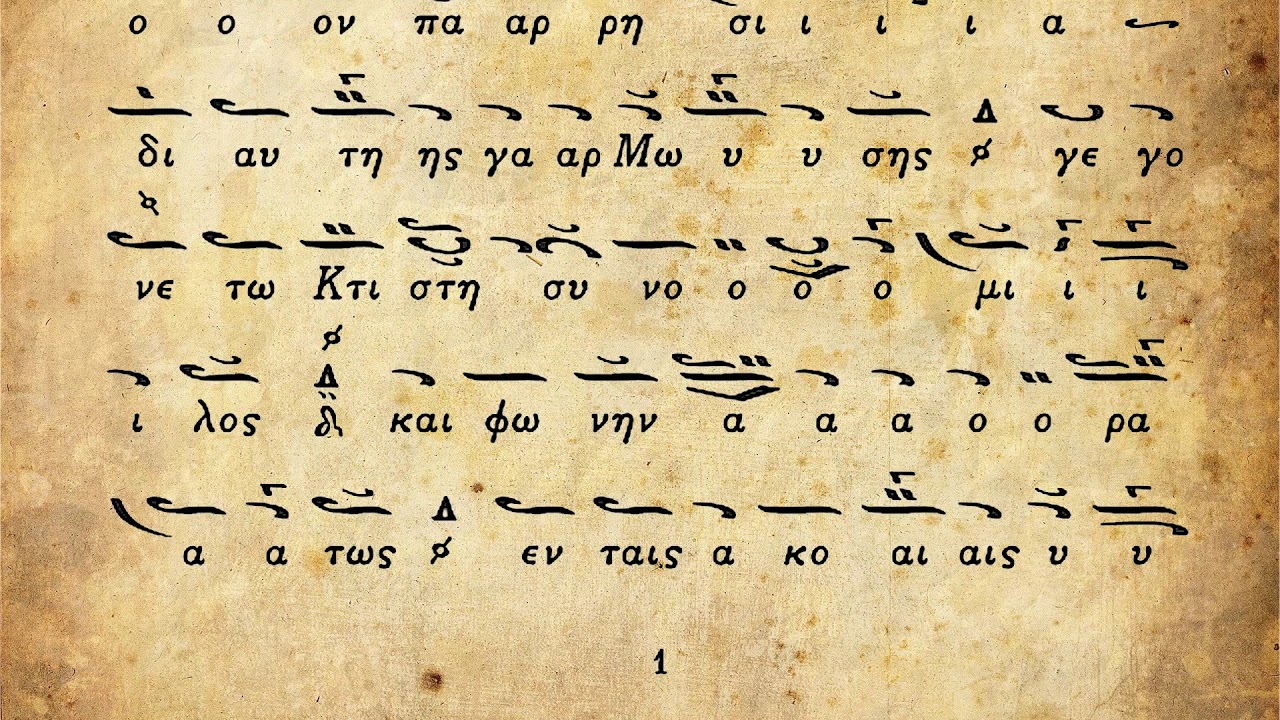 ο ο ον πα αρ ρη σι ι ι ι α
δι αυ τη ης γα αρ Μω υ υ σης γε γο
νε τω Κτι στη συ νο ο ο ο μι ι ι
ι λος και φω νην α α α ο ο ρα
α α τως εν ταις α κο αι αις υ υ
1